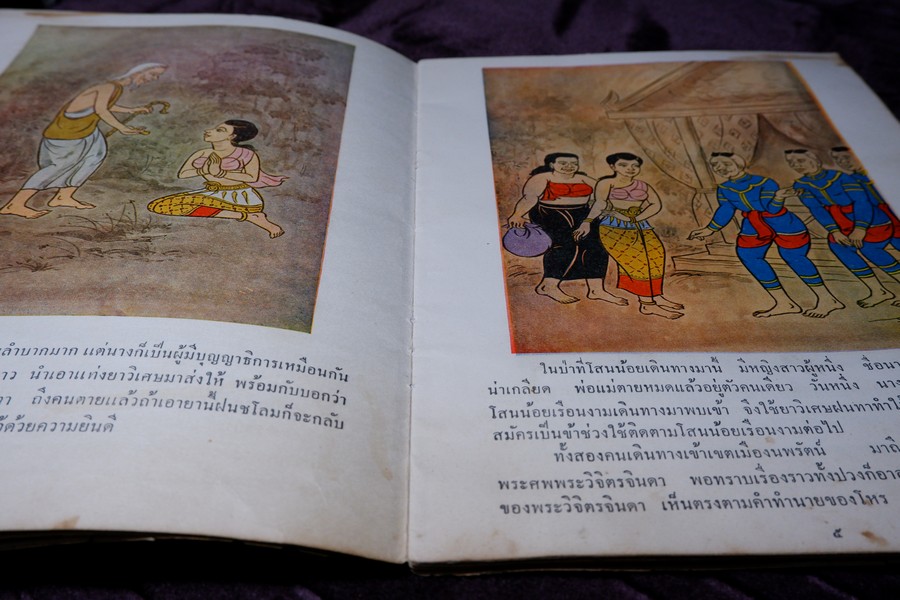 ลำบากมาก แต่นางก็เป็นผู้มีบุญญาธิการเหมือนกัน
นำเอาแท่งยาวิเศษมาส่งให้ พร้อมกับบอกว่า
ถึงคนตายแล้วถ้าเอายานี้ฝนชโลมก็จะกลับ
ด้วยความยินดี
ในป่าที่โสนน้อยเดินทางมานี้ มีหญิงสาวผู้หนึ่ง ชื่อนา
น่าเกลียด พ่อแม่ตายหมดแล้วอยู่ตัวคนเดียว วันหนึ่ง นาง
โสนน้อยเรือนงามเดินทางมาพบเข้า จึงใช้ยาวิเศษฝนทาทำให้
สมัครเป็นข้าช่วงใช้ติดตามโสนน้อยเรือนงามต่อไป
ทั้งสองคนเดินทางเข้าเขตเมืองนพรัตน์ มาถึ
พระศพพระวิจิตรจินดา พอทราบเรื่องราวทั้งปวงก็อาส
ของพระวิจิตรจินดา เห็นตรงตามคำทำนายของโหร
๕